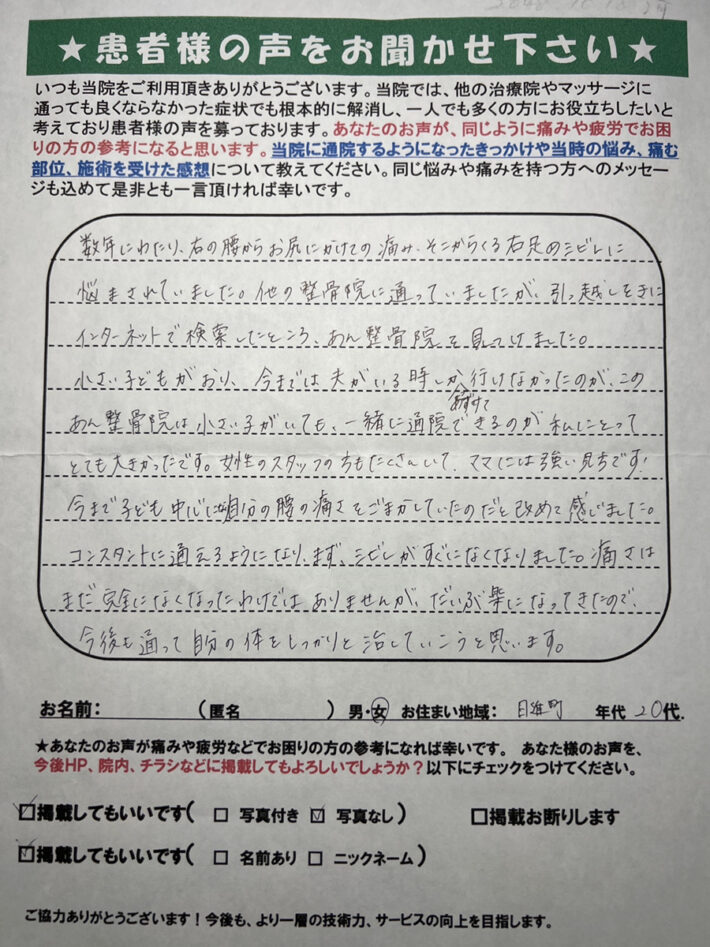 ★患者様の声をお聞かせ下さい★
いつも当院をご利用頂きありがとうございます。当院では、他の治療院やマッサージに
通っても良くならなかった症状でも根本的に解消し、一人でも多くの方にお役立ちしたいと
考えており患者様の声を募っております。あなたのお声が、同じように痛みや疲労でお困
りの方の参考になると思います。当院に通院するようになったきっかけや当時の悩み、痛む
部位、施術を受けた感想について教えてください。同じ悩みや痛みを持つ方へのメッセー
ジも込めて是非とも一言頂ければ幸いです。
数年にわたり、右の腰からお尻にかけての痛み、そこからくる右足のシビレに
悩まされていました。他の整骨院に通っていましたが、引っ越しをきに
インターネットで検索したところ、あん整骨院を見つけました。
小さい子どもがおり、今までは夫がいる時しか行けなかったのが、この
あずけて
あん整骨院は小さい子がいても、一緒に通院できるのが私にとって
とても大きかったです。女性のスタッフの方もたくさんいて、ママには強い見方です!
今まで子ども中心に自分の腰の痛さをごまかしていたのだと改めて感じました。
コンスタントに通えるようになり、まず、シビレがすぐになくなりました。痛さは
まだ完全になくなったわけではありませんが、だいぶ楽になってきたので、
今後も通って自分の体をしっかりと治していこうと思います。
お名前: (匿名 ) 男・女 お住まい地域: 日進町 年代 20代.
★あなたのお声が痛みや疲労などでお困りの方の参考になれば幸いです。 あなた様のお声を、
今後HP、院内、チラシなどに掲載してもよろしいでしょうか?以下にチェックをつけてください。
☑掲載してもいいです( □ 写真付き ☑ 写真なし ) □掲載お断りします
☑掲載してもいいです( □ 名前あり □ ニックネーム )
ご協力ありがとうございます!今後も、より一層の技術力、サービスの向上を目指します。